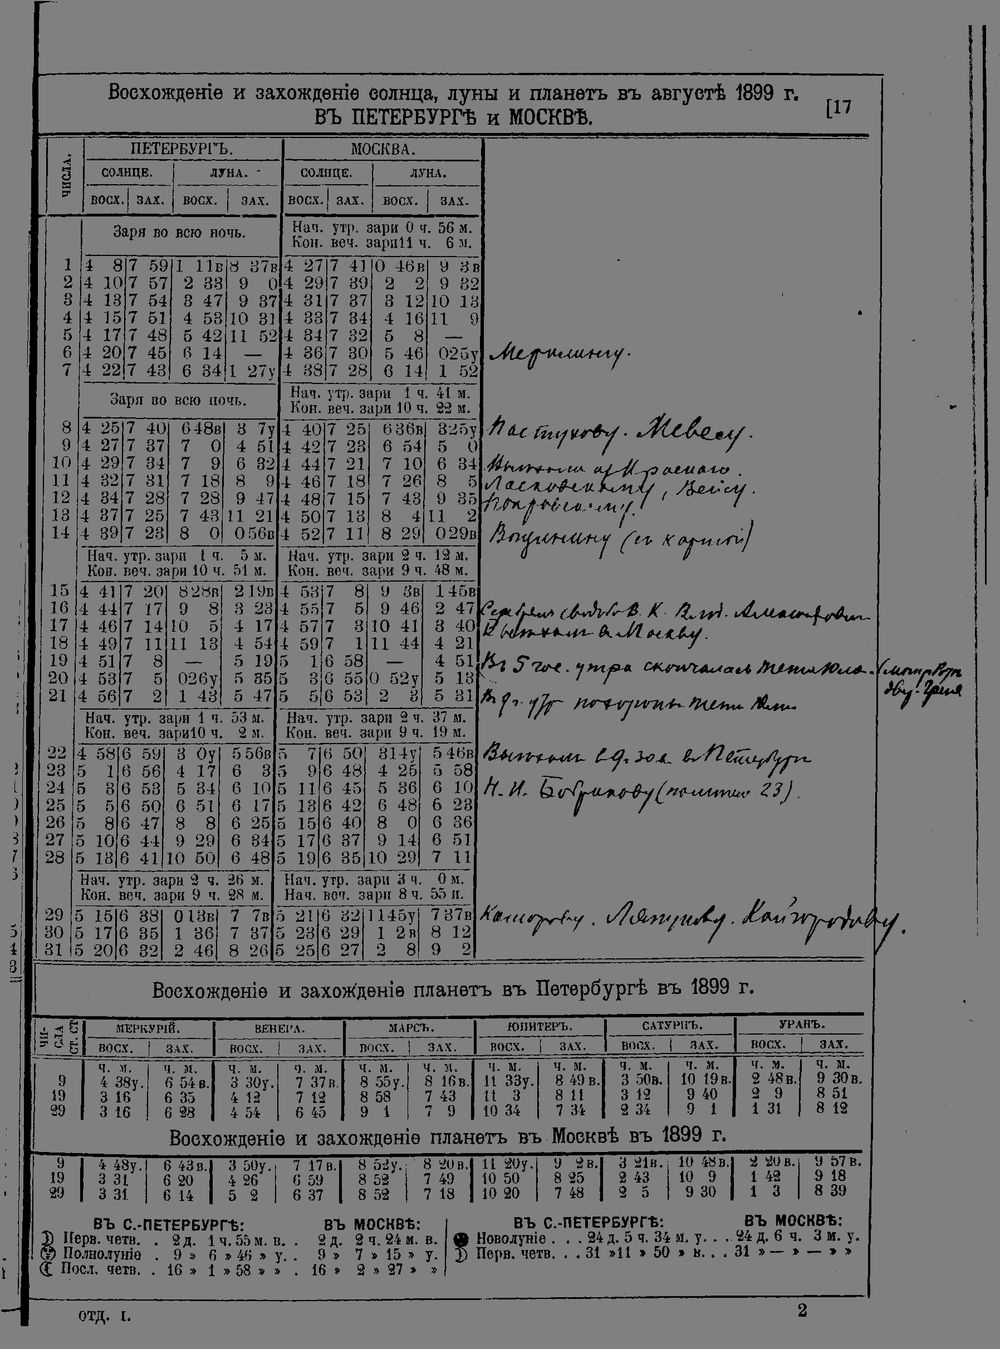 Восхожденіе и захожденіе солнца, луны и планетъ въ августѣ 1899 г.
ВЪ ПЕТЕРБУРГѢ и МОСКВѢ.
[17
ЧИСЛА.
ПЕТЕРБУРГЪ.
МОСКВА.
СОЛНЦЕ. ЛУНА. СОЛНЦЕ. ЛУНА.
ВОСХ. ЗАХ. ВОСХ. ЗАХ. ВОСХ. ЗАХ. ВОСХ. ЗАХ.
Заря во всю ночь. Нач. утр. зари 0 ч. 56 м.
Кон. веч. зари 11 ч. 6 м.
1 4 8 7 59 1 11в 8 37в 4 27 7 41 0 46в 9 3в
2 4 10 7 57 2 33 9 0 4 29 7 39 2 2 9 32
3 4 13 7 54 3 47 9 37 4 31 7 37 3 12 10 13
4 4 15 7 51 4 53 10 31 4 33 7 34 4 16 11 9
5 4 17 7 48 5 42 11 52 4 34 7 32 5 8 —
6 4 20 7 45 6 14 — 4 36 7 30 5 46 0 25у
7 4 22 7 43 6 34 1 27у 4 38 7 28 6 14 1 52
Заря во всю ночь. Нач. утр. зари 1 ч. 41 м.
Кон. веч. зари 10 ч. 22 м.
8 4 25 7 40 6 48в 3 7у 4 40 7 25 6 36в 3 25у Пастухову. Мевесу.
9 4 27 7 37 7 0 4 51 4 42 7 23 6 54 5 0
10 4 29 7 34 7 9 6 32 4 44 7 21 7 10 6 34
11 4 32 7 31 7 18 8 9 4 46 7 18 7 26 8 5 Ласковскому, Вейсу.
12 4 34 7 28 7 28 9 47 4 48 7 15 7 43 9 35
13 4 37 7 25 7 43 11 21 4 50 7 13 8 4 11 2
14 4 39 7 23 8 0 0 56в 4 52 7 11 8 29 0 29в
Нач. утр. зари 1 ч. 5 м. Нач. утр. зари 2 ч. 12 м.
Кон. веч. зари 10 ч. 51 м. Кон. веч. зари 9 ч. 48 м.
15 4 41 7 20 8 28в 2 19в 4 53 7 8 9 3в 1 45в
16 4 44 7 17 9 8 3 23 4 55 7 5 9 46 2 47
17 4 46 7 14 10 5 4 17 4 57 7 3 10 41 3 40 в Москву.
18 4 49 7 11 11 13 4 54 4 59 7 1 11 44 4 21
19 4 51 7 8 — 5 19 5 1 6 58 — 4 51 В 5 час. утра скончалась тетя Юлия
20 4 53 7 5 0 26у 5 35 5 3 6 55 0 52у 5 13
21 4 56 7 2 1 43 5 47 5 5 6 53 2 3 5 31 похороны тети Юлии
Нач. утр. зари 1 ч. 53 м. Нач. утр. зари 2 ч. 37 м.
Кон. веч. зари 10 ч. 2 м. Кон. веч. зари 9 ч. 19 м.
22 4 58 6 59 3 0у 5 56в 5 7 6 50 3 14у 5 46в
23 5 1 6 56 4 17 6 3 5 9 6 48 4 25 5 58
24 5 3 6 53 5 34 6 10 5 11 6 45 5 36 6 10 Н. И. Бобрикову
25 5 5 6 50 6 51 6 17 5 13 6 42 6 48 6 23
26 5 8 6 47 8 8 6 25 5 15 6 40 8 0 6 36
27 5 10 6 44 9 29 6 34 5 17 6 37 9 14 6 51
28 5 13 6 41 10 50 6 48 5 19 6 35 10 29 7 11
Нач. утр. зари 2 ч. 26 м. Нач. утр. зари 3 ч. 0 м.
Кон. веч. зари 9 ч. 28 м. Нач. веч. зари 8 ч. 55 м.
29 5 15 6 38 0 13в 7 7в 5 21 6 32 11 45у 7 37в Ляпунову. Кайгородову.
30 5 17 6 35 1 36 7 37 5 23 6 29 1 2в 8 12
31 5 20 6 32 2 46 8 26 5 25 6 27 2 8 9 2
Восхожденіе и захожденіе планетъ въ Петербургѣ въ 1899 г.
ЧИСЛА СТ. СТ. МЕРКУРІЙ. ВЕНЕРА. МАРСЪ. ЮПИТЕРЪ. САТУРНЪ. УРАНЪ.
ВОСХ. ЗАХ. ВОСХ. ЗАХ. ВОСХ. ЗАХ. ВОСХ. ЗАХ. ВОСХ. ЗАХ. ВОСХ. ЗАХ.
ч. м. ч. м. ч. м. ч. м. ч. м. ч. м. ч. м. ч. м. ч. м. ч. м. ч. м. ч. м.
9 4 38у. 6 54в. 3 30у. 7 37в. 8 55у. 8 16в. 11 33у. 8 49в. 3 50в. 10 19в. 2 48в. 9 30в.
19 3 16 6 35 4 12 7 12 8 58 7 43 11 3 8 11 3 12 9 40 2 9 8 51
29 3 16 6 28 4 54 6 45 9 1 7 9 10 34 7 34 2 34 9 1 1 31 8 12
Восхожденіе и захожденіе планетъ въ Москвѣ въ 1899 г.
9 4 48у. 6 43в. 3 50у. 7 17в. 8 52у. 8 20в. 11 20у. 9 2в. 3 21в. 10 48в. 2 20в. 9 57в.
19 3 31 6 20 4 26 6 59 8 52 7 49 10 50 8 25 2 43 10 9 1 42 9 18
29 3 31 6 14 5 2 6 37 8 52 7 18 10 20 7 48 2 5 9 30 1 3 8 39
ВЪ С.-ПЕТЕРБУРГѢ: ВЪ МОСКВѢ: ВЪ С.-ПЕТЕРБУРГѢ: ВЪ МОСКВѢ:
Перв. четв. . 2 д. 1 ч. 55 м. в. . 2 д. 2 ч. 24 м. в. Новолуніе . . . 24 д. 5 ч. 34 м. у. . . 24 д. 6 ч. 3 м. у.
Полнолуніе . 9 » 6 » 46 » у. . 9 » 7 » 15 » у. Перв. четв. . . 31 » 11 » 50 » в. . . 31 » — » — » »
Посл. четв. . 16 » 1 » 58 » » . 16 » 2 » 27 » »
ОТД. I.
2